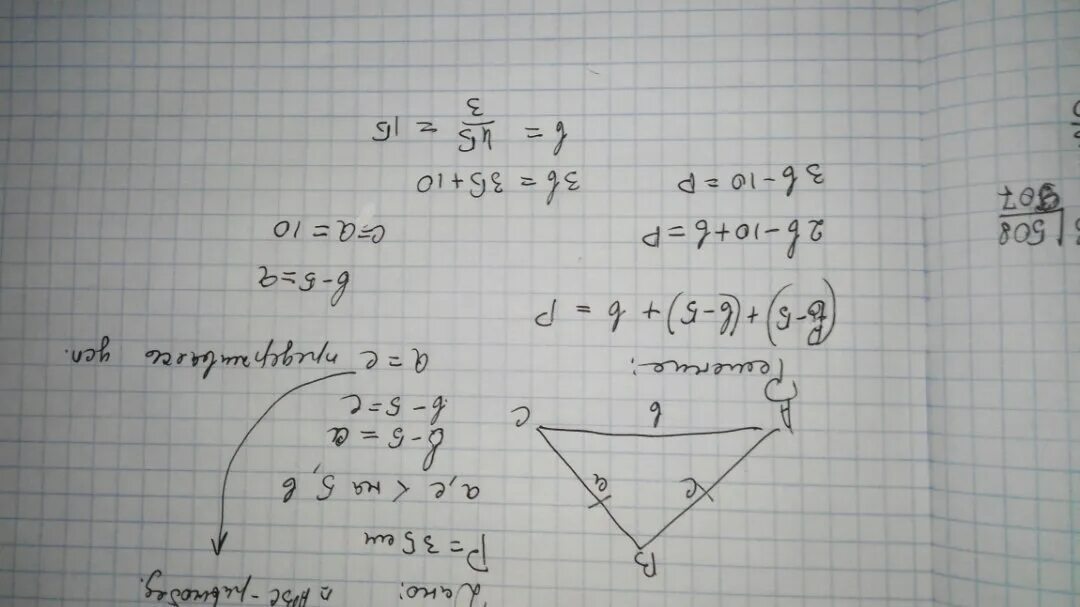 Дано: △ABC - равнобед.
P = 35 см
a, c < на 5, b
b - 5 = a
b - 5 = c
a = c придерживаясь усл.
B
c a
A b C
Решение:
(b-5)+(b-5)+b = P
2b-10+b=P
3b-10=P
b-5=a
c=a=10
3b=35+10
b = 45/3 = 15
508
507